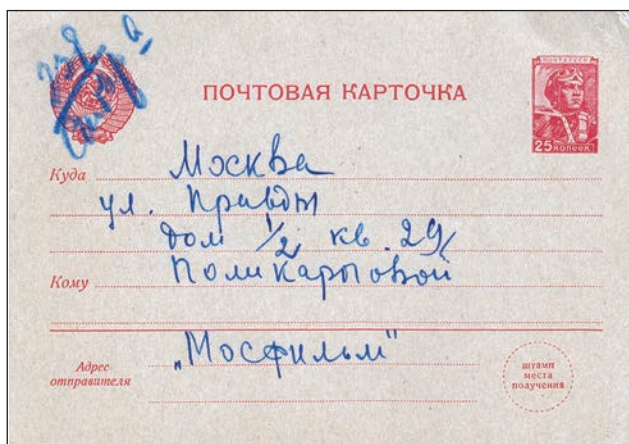 ПОЧТОВАЯ КАРТОЧКА
ПОЧТА СССР
25 КОПЕЕК
Куда Москва
ул. Правды
дом 1/2 кв. 29
Кому Поликарповой
Адрес отправителя „Мосфильм"
штамп
места
получения